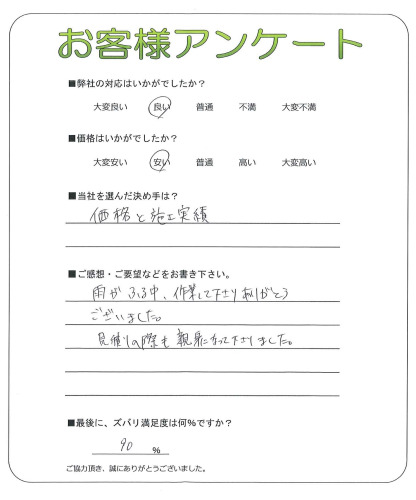 お客様アンケート
■弊社の対応はいかがでしたか？
大変良い 良い 普通 不満 大変不満
■価格はいかがでしたか？
大変安い 安い 普通 高い 大変高い
■当社を選んだ決め手は？
価格と施工実績
■ご感想・ご要望などをお書き下さい。
雨がふる中、作業して下さりありがとう
ございました。
見積りの際も親身になって下さりました。
■最後に、ズバリ満足度は何%ですか？
90 %
ご協力頂き、誠にありがとうございました。